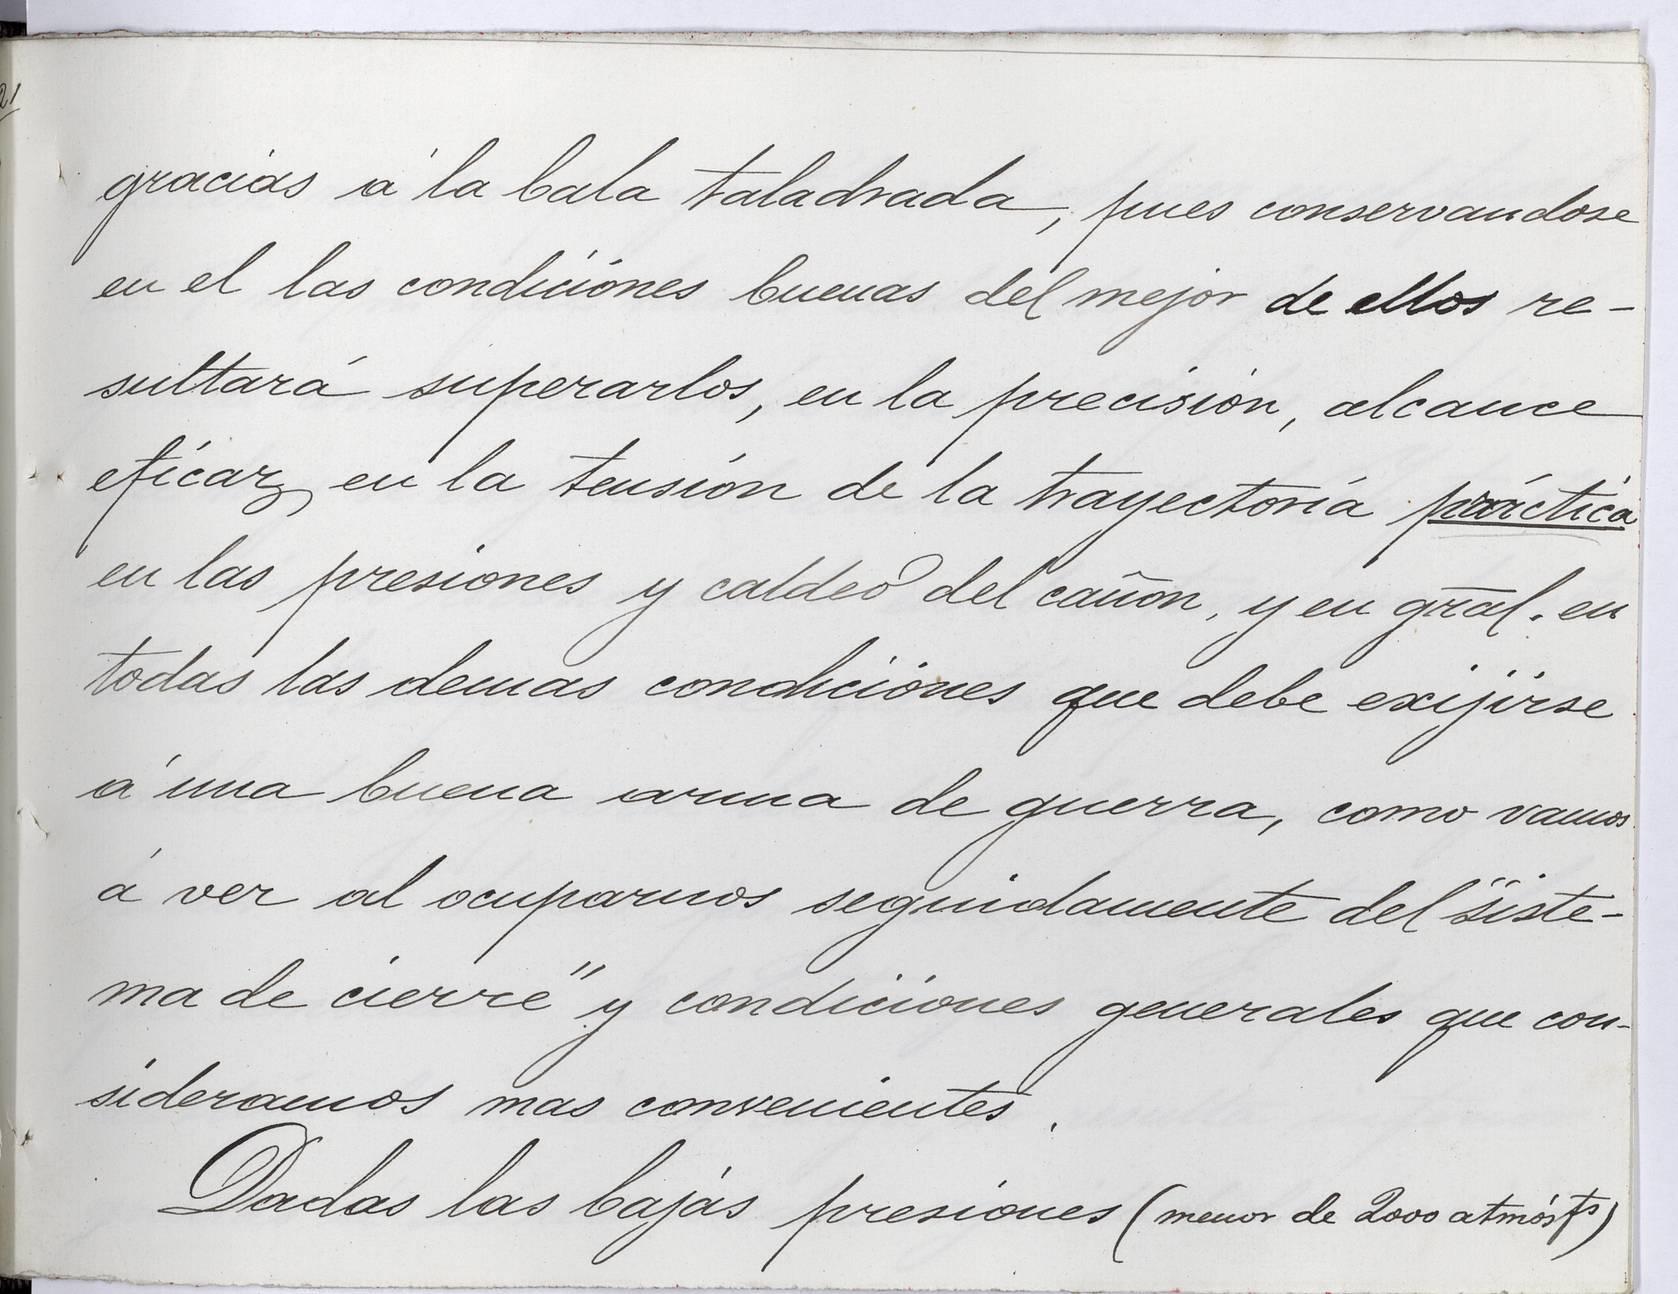 21
gracias á la bala taladrada, pues conservandose
en el las condiciones buenas del mejor de ellos re-
sultará superarlos, en la precisión, alcance
eficaz, en la tensión de la trayectoria práctica
en las presiones y caldeo del cañon, y en gral. en
todas las demas condiciones que debe exijirse
á una buena arma de guerra, como vamos
á ver al ocuparnos seguidamente del "siste-
ma de cierre" y condiciones generales que con-
sideramos mas convenientes.
Dadas las bajas presiones (menor de 2000 atmósfs)